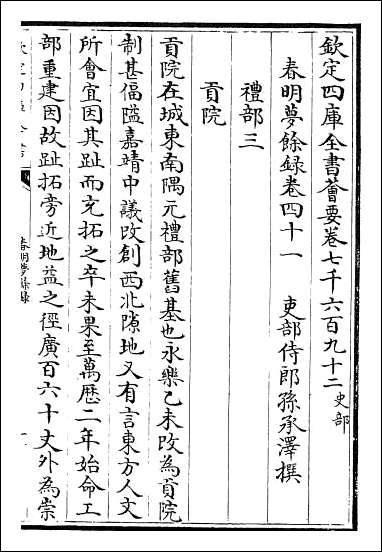 欽定四庫全書薈要卷七千六百九十二 史部
春明夢餘録卷四十一
吏部侍郎孫承澤撰
禮部三
貢院
貢院在城東南隅元禮部舊基也永樂乙未改為貢院
制甚偪隘嘉靖中議改創西北隙地又有言東方人文
所會宜因其趾而充拓之卒未果至萬厯二年始命工
部重建因故趾拓旁近地益之徑廣百六十丈外為崇
春明夢餘録